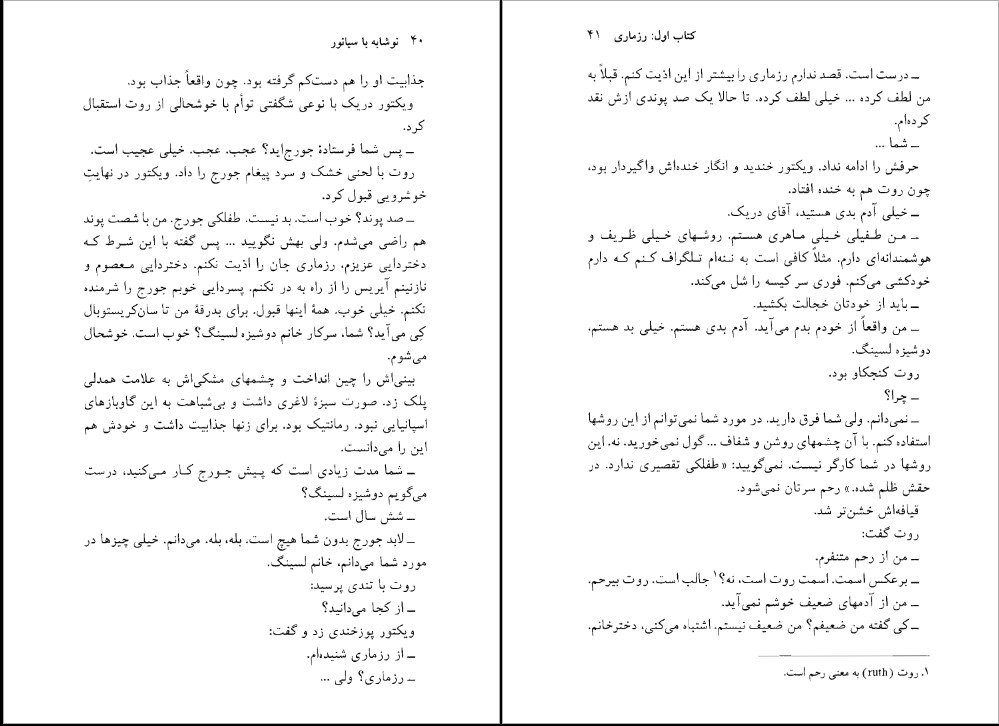 ۴۰ نوشابه با سیانور
جذابیت او را هم دست‌کم گرفته بود. چون واقعاً جذاب بود.
ویکتور دریک با نوعی شگفتی توأم با خوشحالی از روت استقبال
کرد.
ــ پس شما فرستادهٔ جورج‌اید؟ عجب. عجب. خیلی عجیب است.
روت با لحنی خشک و سرد پیغام جورج را داد. ویکتور در نهایتِ
خوشرویی قبول کرد.
ــ صد پوند؟ خوب است. بد نیست. طفلکی جورج. من با شصت پوند
هم راضی می‌شدم. ولی بهش نگویید ... پس گفته با این شرط که
دختردایی عزیزم، رزماری جان را اذیت نکنم. دختردایی معصوم و
نازنینم آیریس را از راه به در نکنم. پسردایی خوبم جورج را شرمنده
نکنم. خیلی خوب. همهٔ اینها قبول. برای بدرقهٔ من تا سان‌کریستوبال
کِی می‌آید؟ شما، سرکار خانم دوشیزه لسینگ؟ خوب است. خوشحال
می‌شوم.
بینی‌اش را چین انداخت و چشمهای مشکی‌اش به علامت همدلی
پلک زد. صورت سبزهٔ لاغری داشت و بی‌شباهت به این گاوبازهای
اسپانیایی نبود. رمانتیک بود. برای زنها جذابیت داشت و خودش هم
این را می‌دانست.
ــ شما مدت زیادی است که پیش جورج کار می‌کنید، درست
می‌گویم دوشیزه لسینگ؟
ــ شش سال است.
ــ لابد جورج بدون شما هیچ است. بله، بله. می‌دانم. خیلی چیزها در
مورد شما می‌دانم، خانم لسینگ.
روت با تندی پرسید:
ــ از کجا می‌دانید؟
ویکتور پوزخندی زد و گفت:
ــ از رزماری شنیده‌ام.
ــ رزماری؟ ولی ...
کتاب اول: رزماری ۴۱
ــ درست است. قصد ندارم رزماری را بیشتر از این اذیت کنم. قبلاً به
من لطف کرده ... خیلی لطف کرده. تا حالا یک صد پوندی ازش نقد
کرده‌ام.
ــ شما ...
حرفش را ادامه نداد. ویکتور خندید و انگار خنده‌اش واگیردار بود،
چون روت هم به خنده افتاد.
ــ خیلی آدم بدی هستید، آقای دریک.
ــ من طفیلی خیلی ماهری هستم. روشهای خیلی ظریف و
هوشمندانه‌ای دارم. مثلاً کافی است به ننه‌ام تلگراف کنم که دارم
خودکشی می‌کنم. فوری سر کیسه را شل می‌کند.
ــ باید از خودتان خجالت بکشید.
ــ من واقعاً از خودم بدم می‌آید. آدم بدی هستم. خیلی بد هستم،
دوشیزه لسینگ.
روت کنجکاو بود.
ــ چرا؟
ــ نمی‌دانم. ولی شما فرق دارید. در مورد شما نمی‌توانم از این روشها
استفاده کنم. با آن چشمهای روشن و شفاف ... گول نمی‌خورید. نه. این
روشها در شما کارگر نیست. نمی‌گویید: «طفلکی تقصیری ندارد. در
حقش ظلم شده.» رحم سرتان نمی‌شود.
قیافه‌اش خشن‌تر شد.
روت گفت:
ــ من از رحم متنفرم.
ــ برعکس اسمت. اسمت روت است، نه؟۱ جالب است. روت بیرحم.
ــ من از آدمهای ضعیف خوشم نمی‌آید.
ــ کی گفته من ضعیفم؟ من ضعیف نیستم. اشتباه می‌کنی، دخترخانم.
۱. روت (ruth) به معنی رحم است.